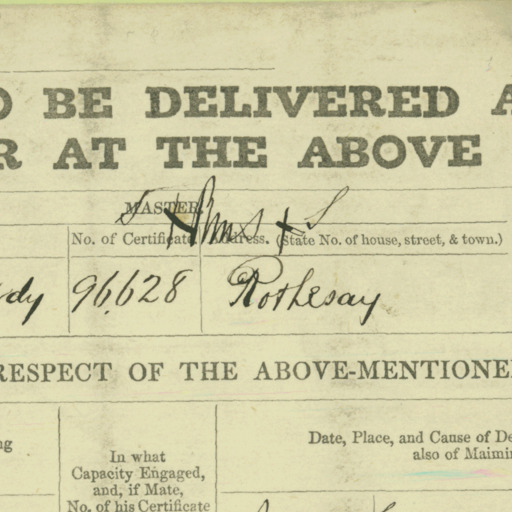 O BE DELIVERED A
R AT THE ABOVE
MASTER
No. of Certificate. Address. (State No. of house, street, & town.)
dy 96,628 Rothesay
RESPECT OF THE ABOVE-MENTIONE
ng
In what
Capacity Engaged,
and, if Mate,
No. of his Certificate
Date, Place, and Cause of De
also of Maimin